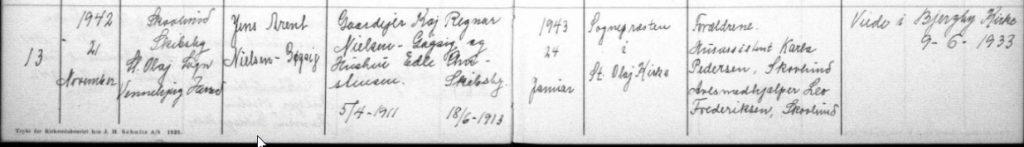 13
1942
21
November
Skovlund
Skibsby
St. Olaj Sogn
Vennebjerg Herred
Jens Arent
Nielsen-Gøgsig
Gaardejer Kaj Regnar
Nielsen-Gøgsig og
Hustru Edle Chri-
stensen. Skibsby.
5/4-1911 18/6-1913
1943
24
Januar
Sognepræsten
i
St. Olaj Kirke
Forældrene.
Karla
Pedersen, Skovlund
Avlsmedhjælper Leo
Frederiksen, Skovlund
Viede i Bjergby Kirke
9-6-1933
Trykt for Kirkeministeriet hos J. H. Schultz A/S 1921.